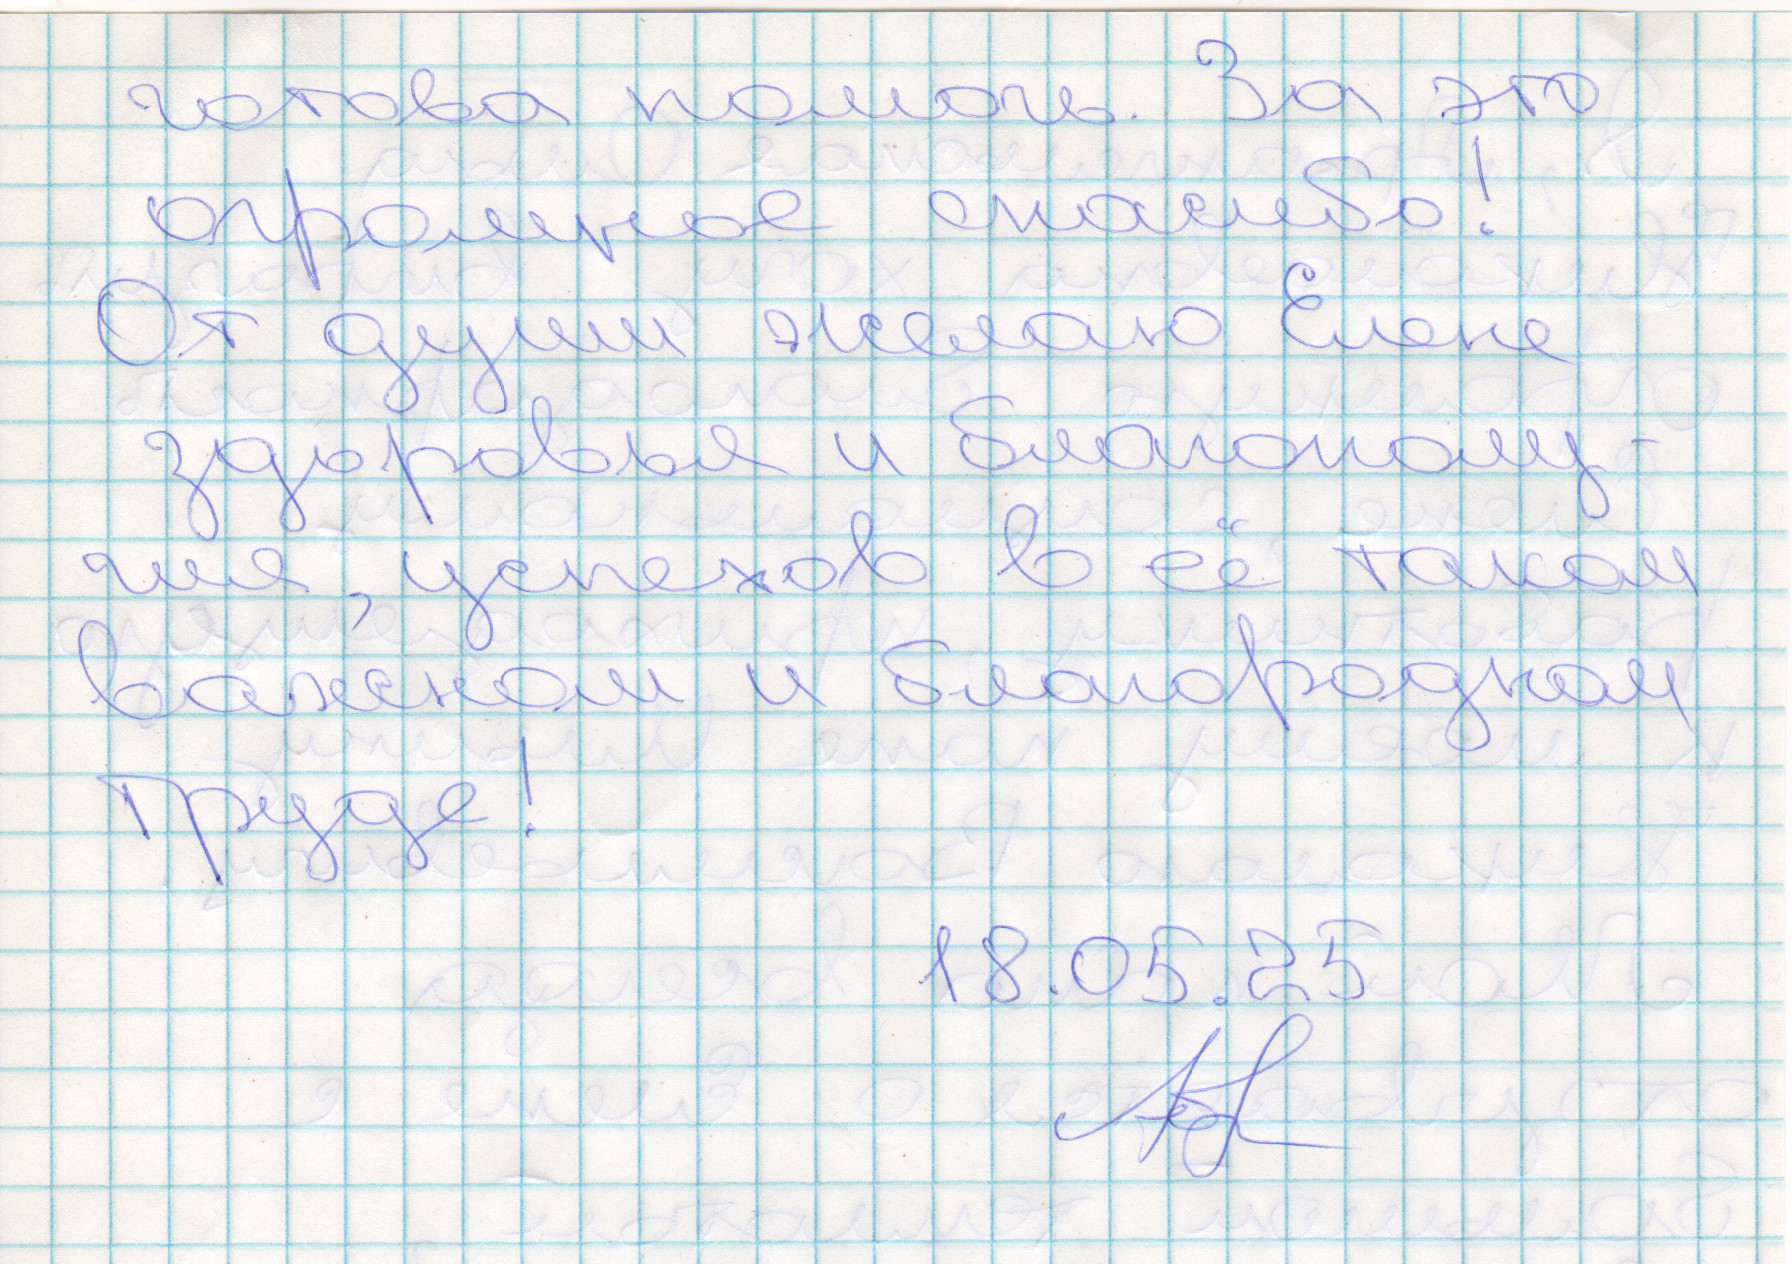 готова помочь. За это
огромное спасибо!
От души желаю Елене
здоровья и благополу-
чия, успехов в её таком
важном и благородном
труде!
18.05.25